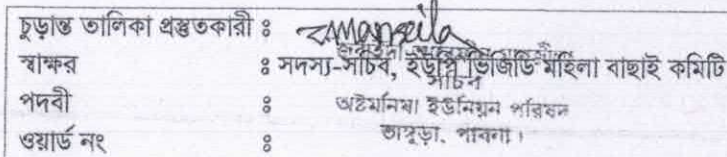 চুড়ান্ত তালিকা প্রস্তুতকারী ঃ
স্বাক্ষর ঃ সদস্য-সচিব, ইউপি ভিজিডি মহিলা বাছাই কমিটি
সচিব
পদবী ঃ অষ্টমনিষা ইউনিয়ন পরিষদ
ওয়ার্ড নং ঃ ভাঙ্গুড়া, পাবনা।